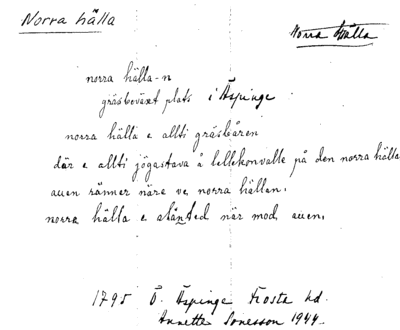 Norra hälla
Norra hälla
norra hälla-n
gräsbeväxt plats i Äspinge
norra hälla e allti gräsbåren
där e allti jögastava å lellekonvalle på den norra hälla
auen ränner näre ve norra hällan.
norra hälla e stänted när mod auen.
1795 Ö. Äspinge Frosta hd.
Annette Jonesson 1944.